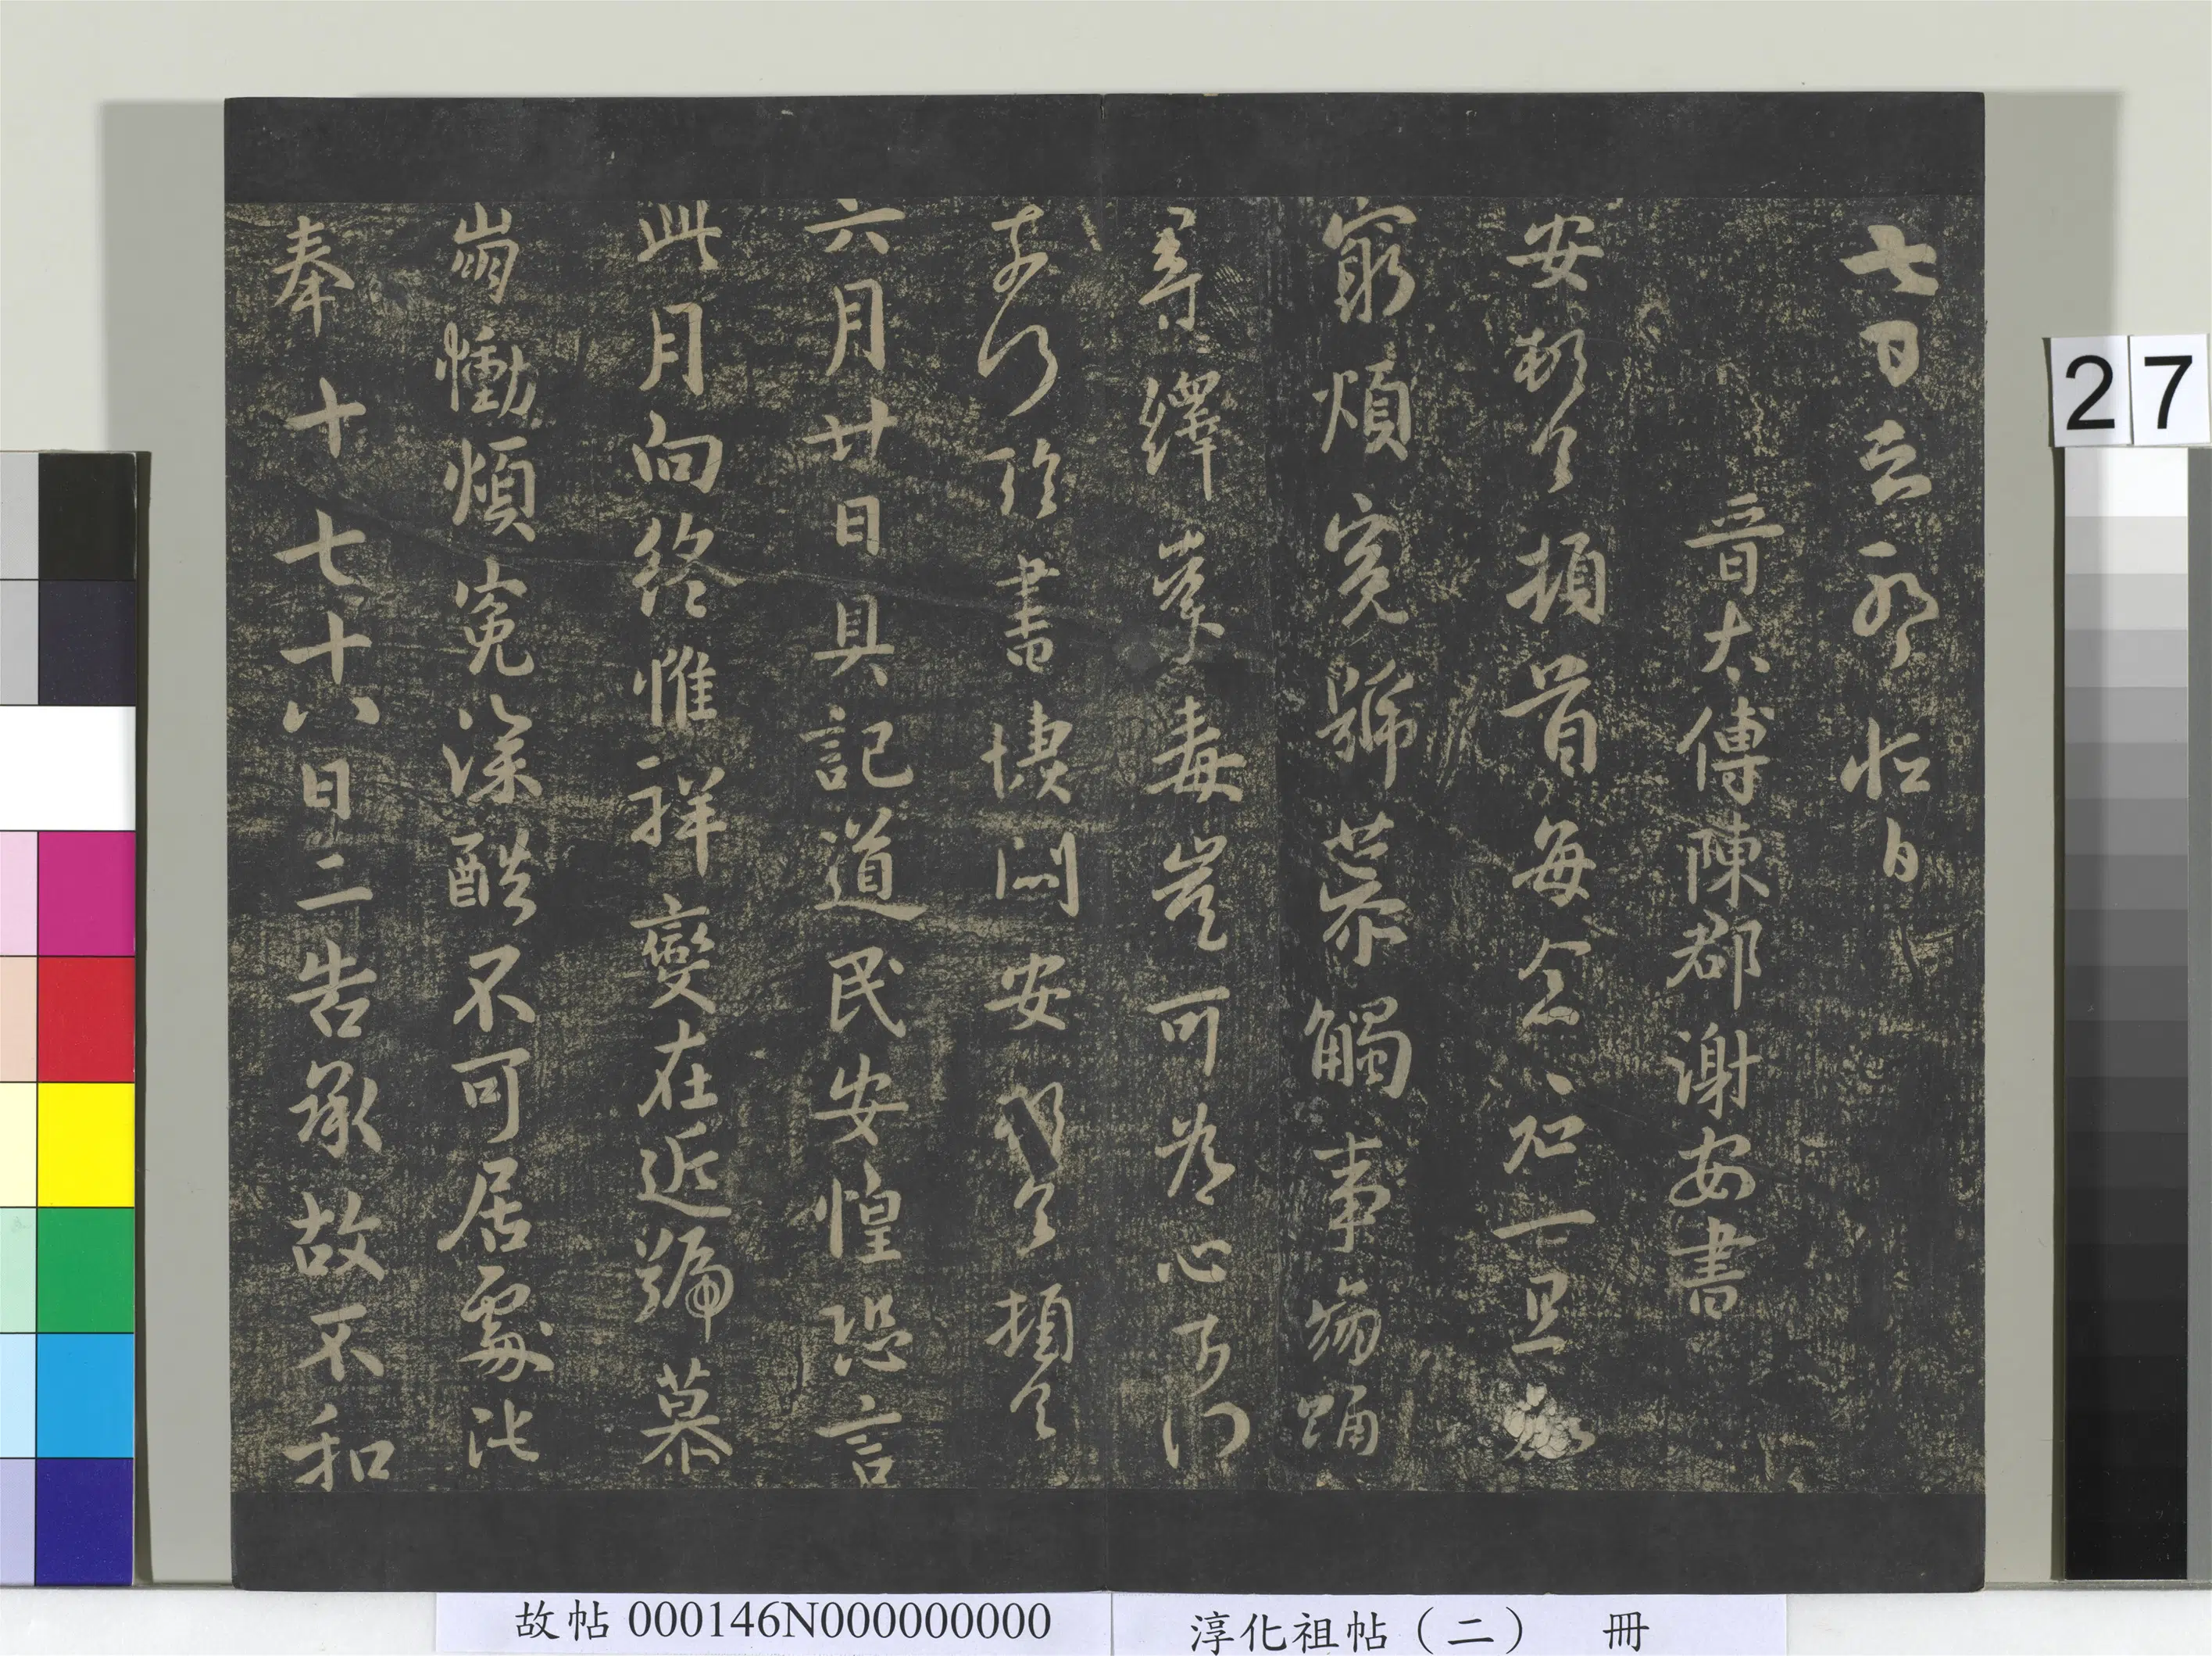 七日
晉太傅陳郡謝安書
安頓首頓首每念君一旦知
窮煩冤號慕觸事傷踊
尋繹荼毒豈可為心奈何
奈何臨書悽悶安頓首頓首
六月廿日具記道民安惶恐言
此月向終惟祥變在近號慕
崩慟煩冤深酷不可居處比
奉十七十八日二告承故不和
27
故帖 000146N000000000
淳化祖帖（二） 冊